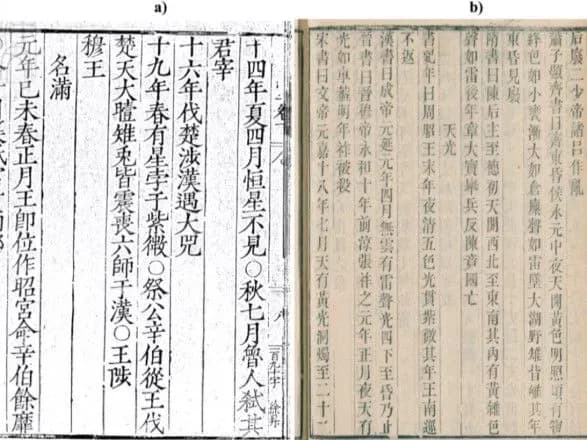 a)
十四年夏四月恒星不見○秋七月魯人弒其
君宰
十六年伐楚涉漢遇大兕
十九年春有星孛于紫微○祭公辛伯從王伐
楚天大曀雉兔皆震喪六師于漢○王陟
穆王
名滿
元年己未春正月王即位作昭宮命辛伯餘靡
b)
后廢二少帝誅呂作
蕭子顯齊書曰齊東昏侯永元中夜天開黃色明照須有物
絳色如小甕漸大如倉廩聲如雷墜太湖野雉皆雊其年
東昏見廢
隋書曰陳后主至德初天開西北至東南其內有黃雜色
聲如雷後年章大寶舉兵反陳竟國亡
天光
書紀年曰周昭王末年夜清五色光貫紫微其年王南巡
不返
漢書曰成帝元延元年四月無雲有雷聲光四下至昏乃止
晉書曰晉穆帝永和十年前涼張祚之元年正月夜天有
光如車蓋明年祚被殺
宋書曰文帝元嘉十八年七月天有黃光洞燭至二十二